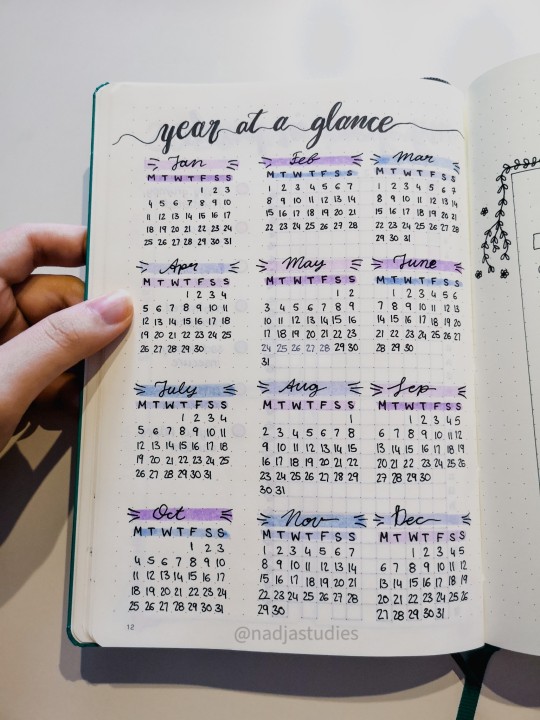 year at a glance
Jan
M T W T F S S
1 2 3
4 5 6 7 8 9 10
11 12 13 14 15 16 17
18 19 20 21 22 23 24
25 26 27 28 29 30 31
Feb
M T W T F S S
1 2 3 4 5 6 7
8 9 10 11 12 13 14
15 16 17 18 19 20 21
22 23 24 25 26 27 28
Mar
M T W T F S S
1 2 3 4 5 6 7
8 9 10 11 12 13 14
15 16 17 18 19 20 21
22 23 24 25 26 27 28
29 30 31
Apr
M T W T F S S
1 2 3 4
5 6 7 8 9 10 11
12 13 14 15 16 17 18
19 20 21 22 23 24 25
26 27 28 29 30
May
M T W T F S S
1 2
3 4 5 6 7 8 9
10 11 12 13 14 15 16
17 18 19 20 21 22 23
24 25 26 27 28 29 30
31
June
M T W T F S S
1 2 3 4 5 6
7 8 9 10 11 12 13
14 15 16 17 18 19 20
21 22 23 24 25 26 27
28 29 30
July
M T W T F S S
1 2 3 4
5 6 7 8 9 10 11
12 13 14 15 16 17 18
19 20 21 22 23 24 25
26 27 28 29 30 31
Aug
M T W T F S S
1
2 3 4 5 6 7 8
9 10 11 12 13 14 15
16 17 18 19 20 21 22
23 24 25 26 27 28 29
30 31
Sep
M T W T F S S
1 2 3 4 5
6 7 8 9 10 11 12
13 14 15 16 17 18 19
20 21 22 23 24 25 26
27 28 29 30
Oct
M T W T F S S
1 2 3
4 5 6 7 8 9 10
11 12 13 14 15 16 17
18 19 20 21 22 23 24
25 26 27 28 29 30 31
Nov
M T W T F S S
1 2 3 4 5 6 7
8 9 10 11 12 13 14
15 16 17 18 19 20 21
22 23 24 25 26 27 28
29 30
Dec
M T W T F S S
1 2 3 4 5
6 7 8 9 10 11 12
13 14 15 16 17 18 19
20 21 22 23 24 25 26
27 28 29 30 31
12
@nadjastudies